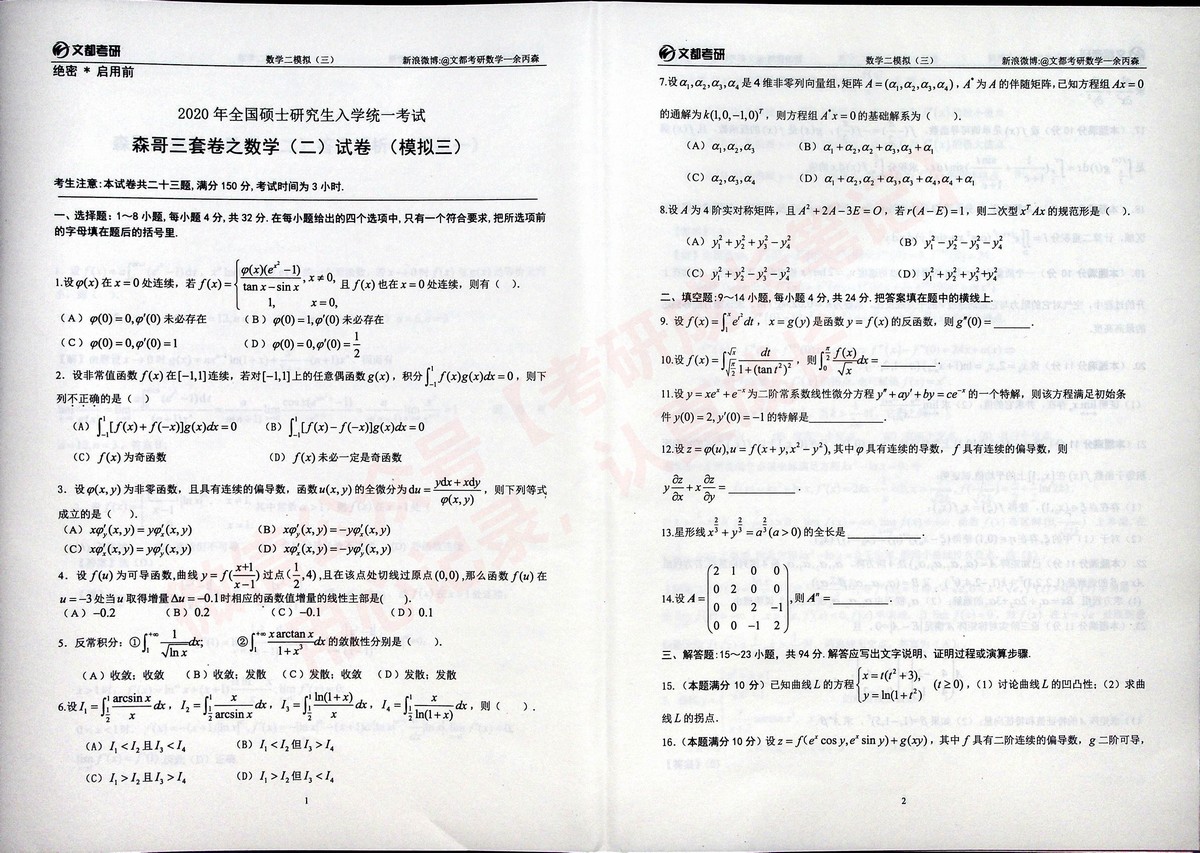 文都考研
数学二模拟（三） 新浪微博:@文都考研数学—余丙森
绝密 * 启用前
2020 年全国硕士研究生入学统一考试
森哥三套卷之数学（二）试卷 （模拟三）
考生注意:本试卷共二十三题,满分 150 分,考试时间为 3 小时.
一、选择题: 1~8 小题,每小题 4 分,共 32 分.在每小题给出的四个选项中,只有一个符合要求,把所选项前
的字母填在题后的括号里.
1.设 φ(x) 在 x = 0 处连续，若 f(x) = { φ(x)(e^{x^2} −1)/(tan x − sin x), x ≠ 0, 1, x = 0, 且 f(x) 也在 x = 0 处连续，则有（ ）.
（A）φ(0) = 0, φ′(0) 未必存在 （B）φ(0) = 1, φ′(0) 未必存在
（C）φ(0) = 0, φ′(0) = 1 （D）φ(0) = 0, φ′(0) = 1/2
2．设非常值函数 f(x) 在[−1,1]连续，若对[−1,1]上的任意偶函数 g(x)，积分 ∫_{−1}^{1} f(x)g(x)dx = 0，则下
列不正确的是（ ）
（A）∫_{−1}^{1}[f(x) + f(−x)]g(x)dx = 0 （B）∫_{−1}^{1}[f(x) − f(−x)]g(x)dx = 0
（C）f(x) 为奇函数 （D）f(x) 未必一定是奇函数
3．设 φ(x, y) 为非零函数，且具有连续的偏导数，函数 u(x, y) 的全微分为 du = (ydx + xdy)/φ(x, y)，则下列等式
成立的是（ ）.
（A）xφ′_x(x, y) = yφ′_y(x, y) （B）xφ′_x(x, y) = −yφ′_y(x, y)
（C）xφ′_y(x, y) = yφ′_x(x, y) （D）xφ′_y(x, y) = −yφ′_x(x, y)
4．设 f(u) 为可导函数,曲线 y = f((x+1)/(x−1)) 过点(1/2, 4),且在该点处切线过原点(0,0),那么函数 f(u) 在
u = −3 处当 u 取得增量 Δu = −0.1 时相应的函数值增量的线性主部是( ).
（A）−0.2 （B）0.2 （C）−0.1 （D）0.1
5．反常积分: ① ∫_1^{+∞} 1/√(ln x) dx; ② ∫_1^{+∞} x arctan x/(1+x^3) dx 的敛散性分别是（ ）.
（A）收敛；收敛 （B）收敛；发散 （C）发散；收敛 （D）发散；发散
6.设 I_1 = ∫_{1/2}^1 arcsin x/x dx，I_2 = ∫_{1/2}^1 x/arcsin x dx，I_3 = ∫_{1/2}^1 ln(1+x)/x dx，I_4 = ∫_{1/2}^1 x/ln(1+x) dx，则（ ）.
（A）I_1 < I_2 且 I_3 < I_4 （B）I_1 < I_2 但 I_3 > I_4
（C）I_1 > I_2 且 I_3 > I_4 （D）I_1 > I_2 但 I_3 < I_4
1
文都考研
数学二模拟（三） 新浪微博:@文都考研数学—余丙森
7.设 α_1, α_2, α_3, α_4 是 4 维非零列向量组,矩阵 A = (α_1, α_2, α_3, α_4)，A^* 为 A 的伴随矩阵,已知方程组 Ax = 0
的通解为 k(1,0,−1,0)^T，则方程组 A^*x = 0 的基础解系为（ ）.
（A）α_1, α_2, α_3 （B）α_1 + α_2, α_2 + α_3, α_3 + α_1
（C）α_2, α_3, α_4 （D）α_1 + α_2, α_2 + α_3, α_3 + α_4, α_4 + α_1
8.设 A 为 4 阶实对称矩阵，且 A^2 + 2A − 3E = O，若 r(A − E) = 1，则二次型 x^T Ax 的规范形是（ ）.
（A）y_1^2 + y_2^2 + y_3^2 − y_4^2 （B）y_1^2 − y_2^2 − y_3^2 − y_4^2
（C）y_1^2 + y_2^2 − y_3^2 − y_4^2 （D）y_1^2 + y_2^2 + y_3^2 + y_4^2
二、填空题: 9~14 小题,每小题 4 分,共 24 分.把答案填在题中的横线上.
9. 设 f(x) = ∫_1^x e^{t^2} dt，x = g(y) 是函数 y = f(x) 的反函数，则 g″(0) = ______.
10.设 f(x) = ∫_{√(π/2)}^{√x} dt/(1+(tan t^2)^{√2})，则 ∫_0^{π/2} f(x)/√x dx = __________.
11.设 y = xe^x + e^{−x} 为二阶常系数线性微分方程 y″ + ay′ + by = ce^{−x} 的一个特解，则该方程满足初始条
件 y(0) = 2, y′(0) = −1 的特解是____________.
12.设 z = φ(u), u = f(x + y, x^2 − y^2),其中 φ 具有连续的导数， f 具有连续的偏导数，则
y ∂z/∂x + x ∂z/∂y = ____________.
13.星形线 x^{2/3} + y^{2/3} = a^{2/3} (a > 0) 的全长是____________.
14.设 A =
( 2 1 0 0
0 2 0 0
0 0 2 −1
0 0 −1 2 )
,则 A^n = ____________.
三、解答题: 15~23 小题，共 94 分.解答应写出文字说明、证明过程或演算步骤.
15.（本题满分 10 分）已知曲线 L 的方程 { x = t(t^2 + 3), y = ln(1 + t^2) (t ≥ 0)，（1）讨论曲线 L 的凹凸性;（2）求曲
线 L 的拐点.
16.（本题满分 10 分）设 z = f(e^x cos y, e^x sin y) + g(xy)，其中 f 具有二阶连续的偏导数，g 二阶可导，
2